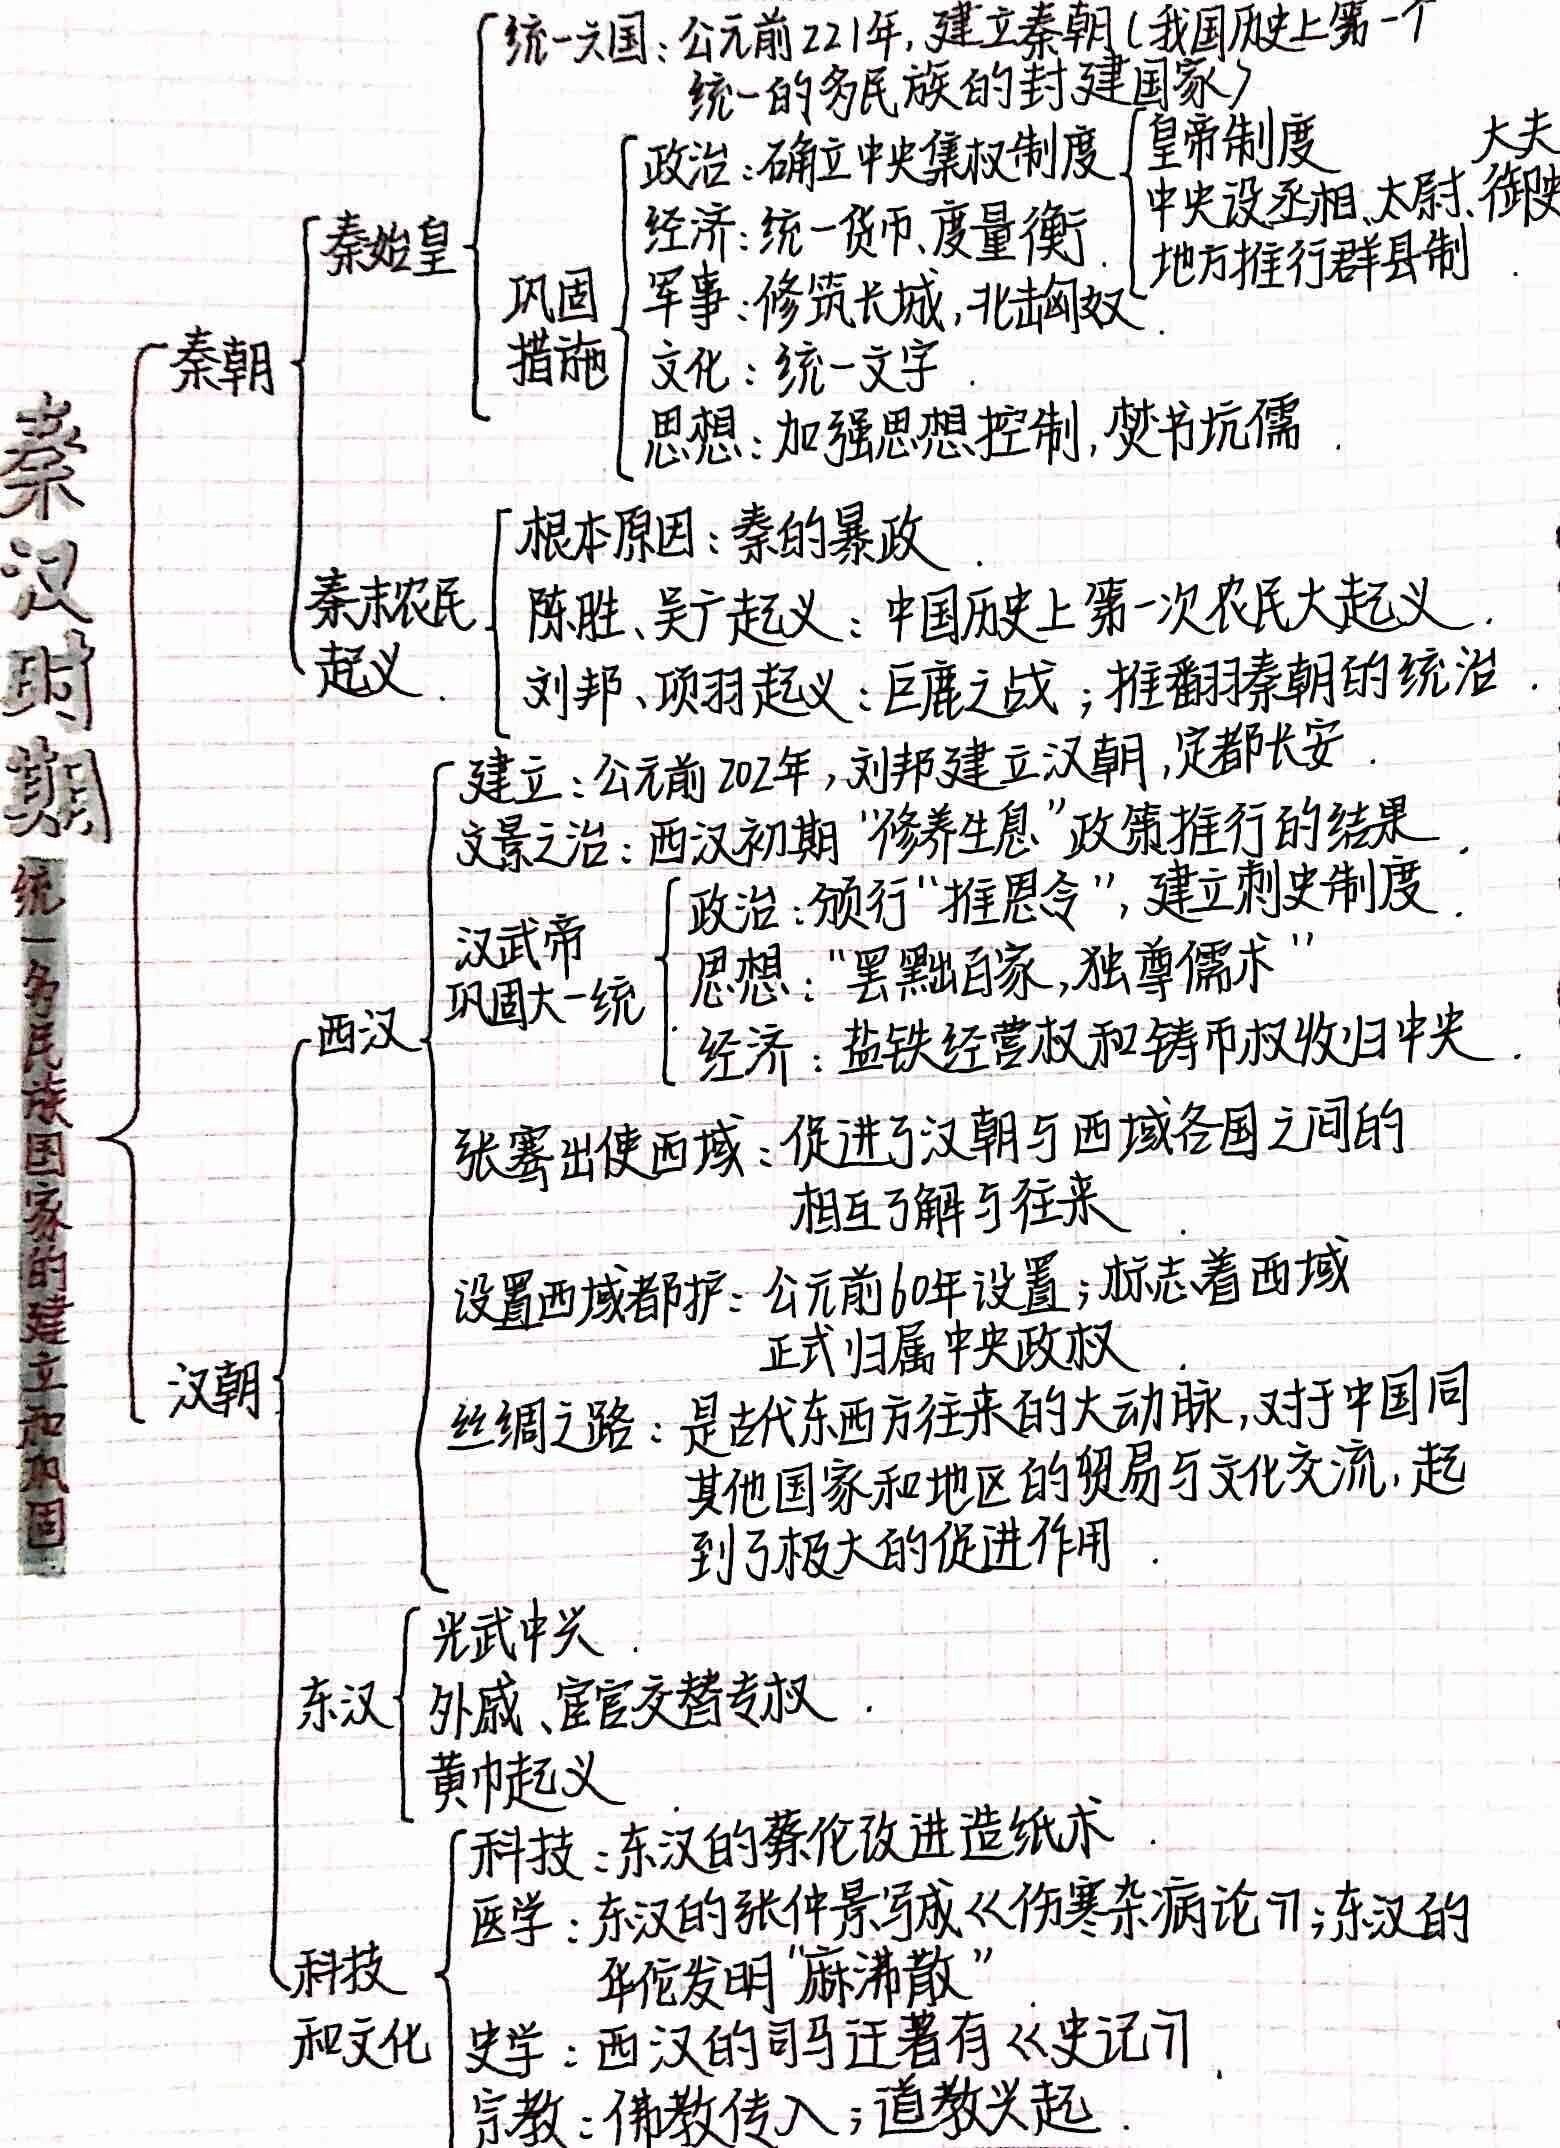 秦汉时期
统一多民族国家的建立和巩固
秦朝
秦始皇
统一六国：公元前221年，建立秦朝（我国历史上第一个
统一的多民族的封建国家）
巩固
措施
政治：确立中央集权制度
皇帝制度
大夫
中央设丞相、太尉、御史
地方推行群县制.
经济：统一货币、度量衡.
军事：修筑长城，北击匈奴.
文化：统一文字.
思想：加强思想控制，焚书坑儒.
秦末农民
起义.
根本原因：秦的暴政.
陈胜、吴广起义：中国历史上第一次农民大起义.
刘邦、项羽起义：巨鹿之战；推翻秦朝的统治.
汉朝
西汉
建立：公元前202年，刘邦建立汉朝，定都长安.
文景之治：西汉初期“修养生息”政策推行的结果.
汉武帝
巩固大一统.
政治：颁行“推恩令”，建立刺史制度.
思想：“罢黜百家，独尊儒术”
经济：盐铁经营权和铸币权收归中央.
张骞出使西域：促进了汉朝与西域各国之间的
相互了解与往来.
设置西域都护：公元前60年设置；标志着西域
正式归属中央政权.
丝绸之路：是古代东西方往来的大动脉，对于中国同
其他国家和地区的贸易与文化交流，起
到了极大的促进作用.
东汉
光武中兴.
外戚、宦官交替专权.
黄巾起义.
科技
和文化
科技：东汉的蔡伦改进造纸术.
医学：东汉的张仲景写成《伤寒杂病论》；东汉的
华佗发明“麻沸散”.
史学：西汉的司马迁著有《史记》.
宗教：佛教传入；道教兴起.